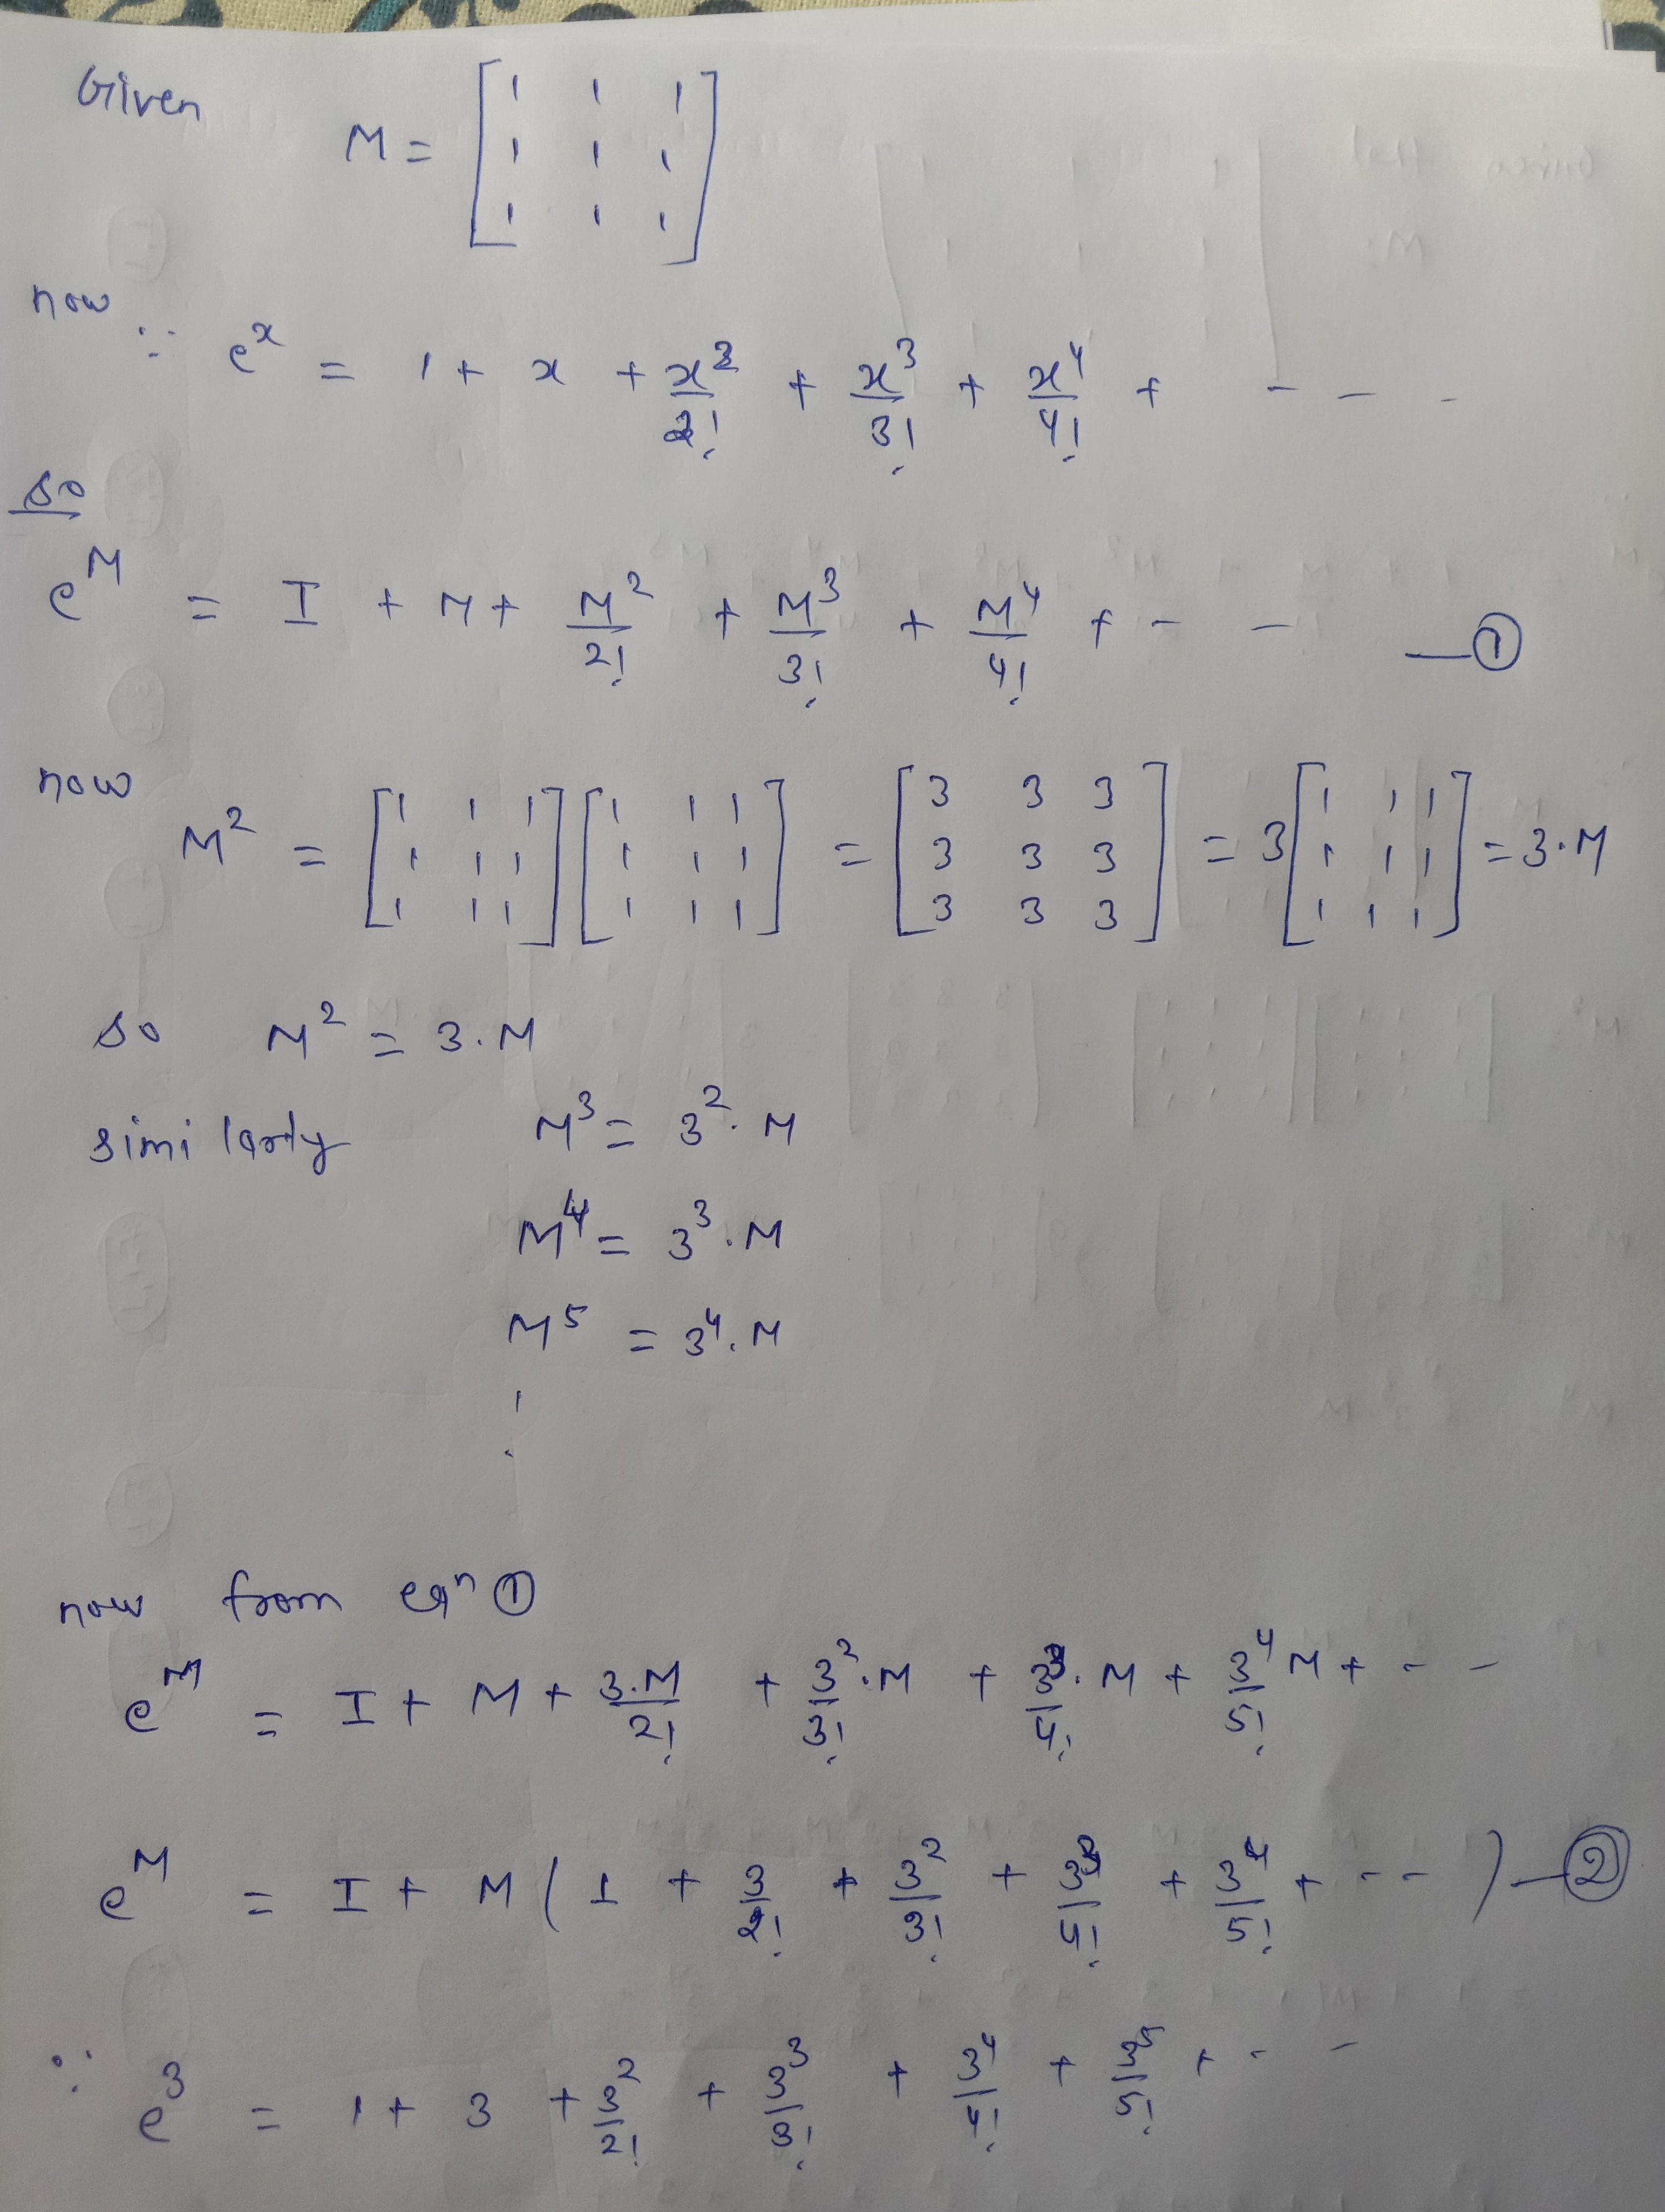 Given
M = [1 1 1
1 1 1
1 1 1]
now
∵ e^x = 1 + x + x^2/2! + x^3/3! + x^4/4! + - - -
so
e^M = I + M + M^2/2! + M^3/3! + M^4/4! + - - —①
now
M^2 = [1 1 1; 1 1 1; 1 1 1] [1 1 1; 1 1 1; 1 1 1] = [3 3 3; 3 3 3; 3 3 3] = 3 [1 1 1; 1 1 1; 1 1 1] = 3·M
so M^2 = 3·M
similarly M^3 = 3^2·M
M^4 = 3^3·M
M^5 = 3^4·M
⋮
now from eqn ①
e^M = I + M + 3·M/2! + 3^2/3!·M + 3^3/4!·M + 3^4/5! M + - -
e^M = I + M(1 + 3/2! + 3^2/3! + 3^3/4! + 3^4/5! + - - ) —②
∵ e^3 = 1 + 3 + 3^2/2! + 3^3/3! + 3^4/4! + 3^5/5! + - -